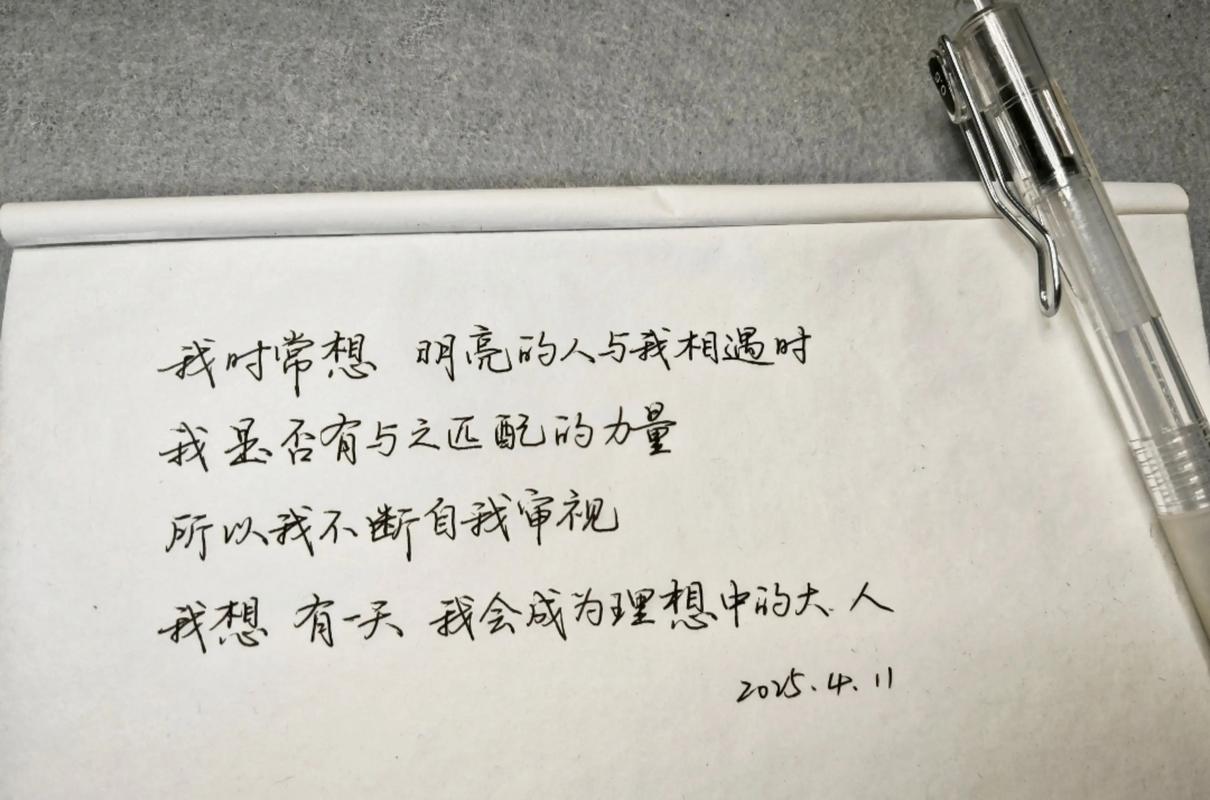 我时常想 明亮的人与我相遇时
我是否有与之匹配的力量
所以我不断自我审视
我想 有一天 我会成为理想中的大人
2025.4.11